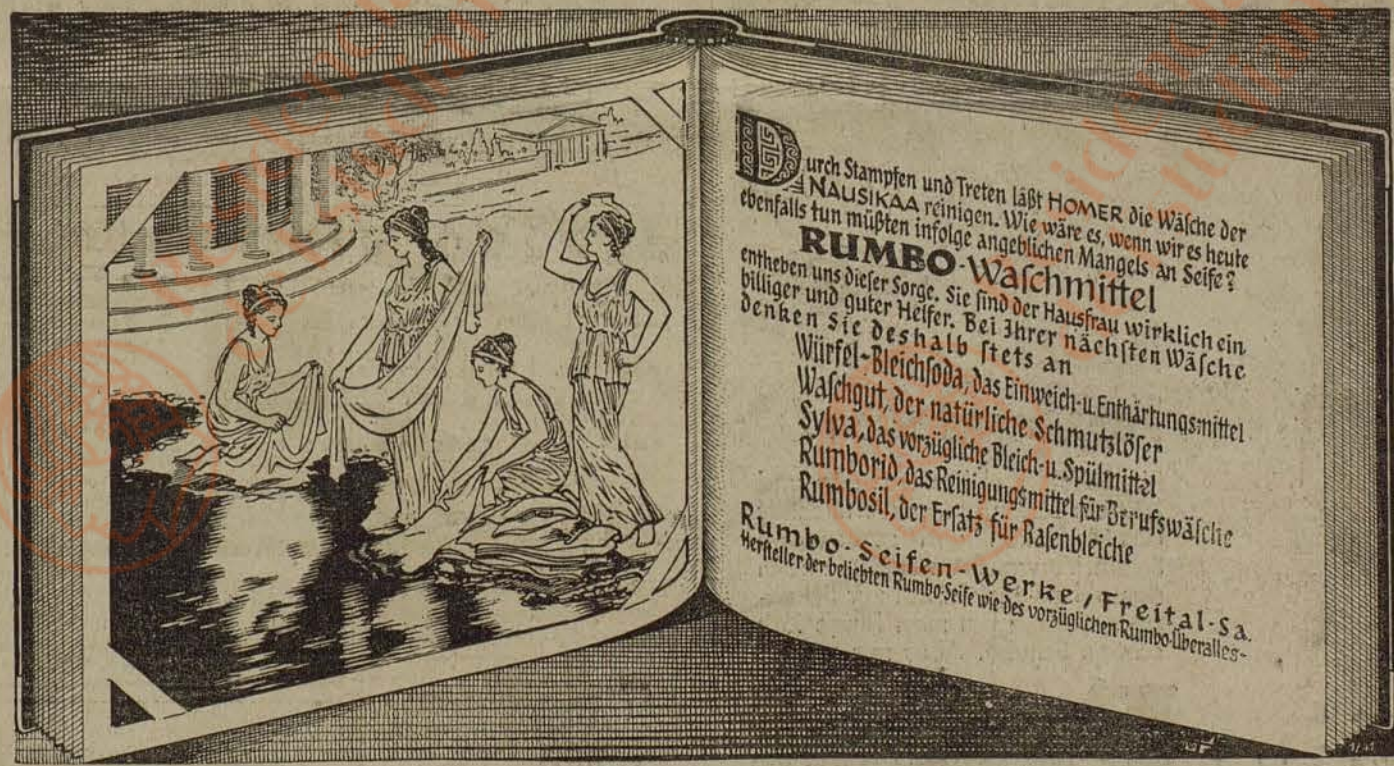 Durch Stampfen und Treten läßt HOMER die Wäsche der
NAUSIKAA reinigen. Wie wäre es, wenn wir es heute
ebenfalls tun müßten infolge angeblichen Mangels an Seife?
RUMBO-Waſchmittel
entheben uns dieſer Sorge. Sie ſind der Hausfrau wirklich ein
billiger und guter Helfer. Bei Ihrer nächſten Wäſche
denken Sie deshalb ſtets an
Würfel-Bleichſoda, das Einweich-u. Enthärtungsmittel
Waſchgut, der natürliche Schmutzlöſer
Sylva, das vorzügliche Bleich-u. Spülmittel
Rumborid, das Reinigungsmittel für Berufswäſche
Rumbosil, der Erſatz für Raſenbleiche
Rumbo-Seifen-Werke / Freital-Sa.
Herſteller der beliebten Rumbo-Seife wie des vorzüglichen Rumbo-Überalles-